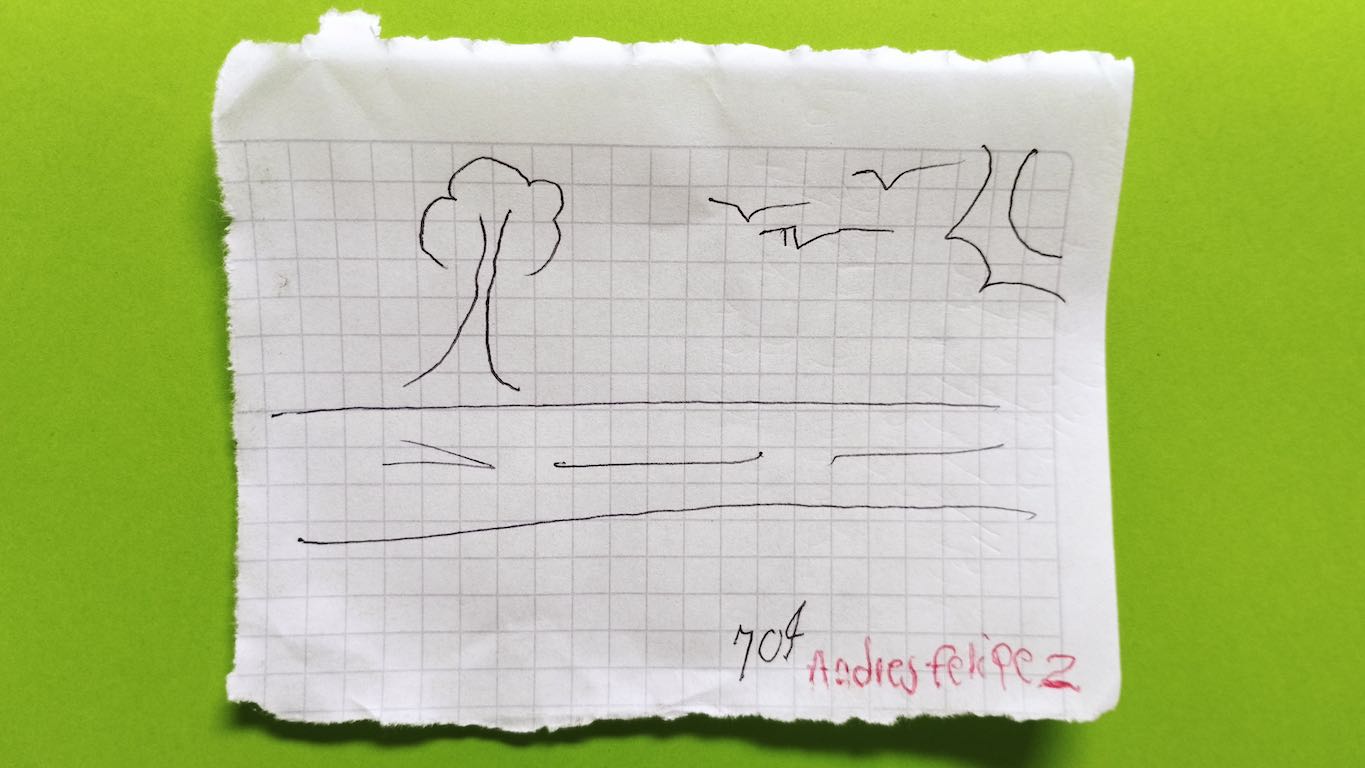 Andres felipe z